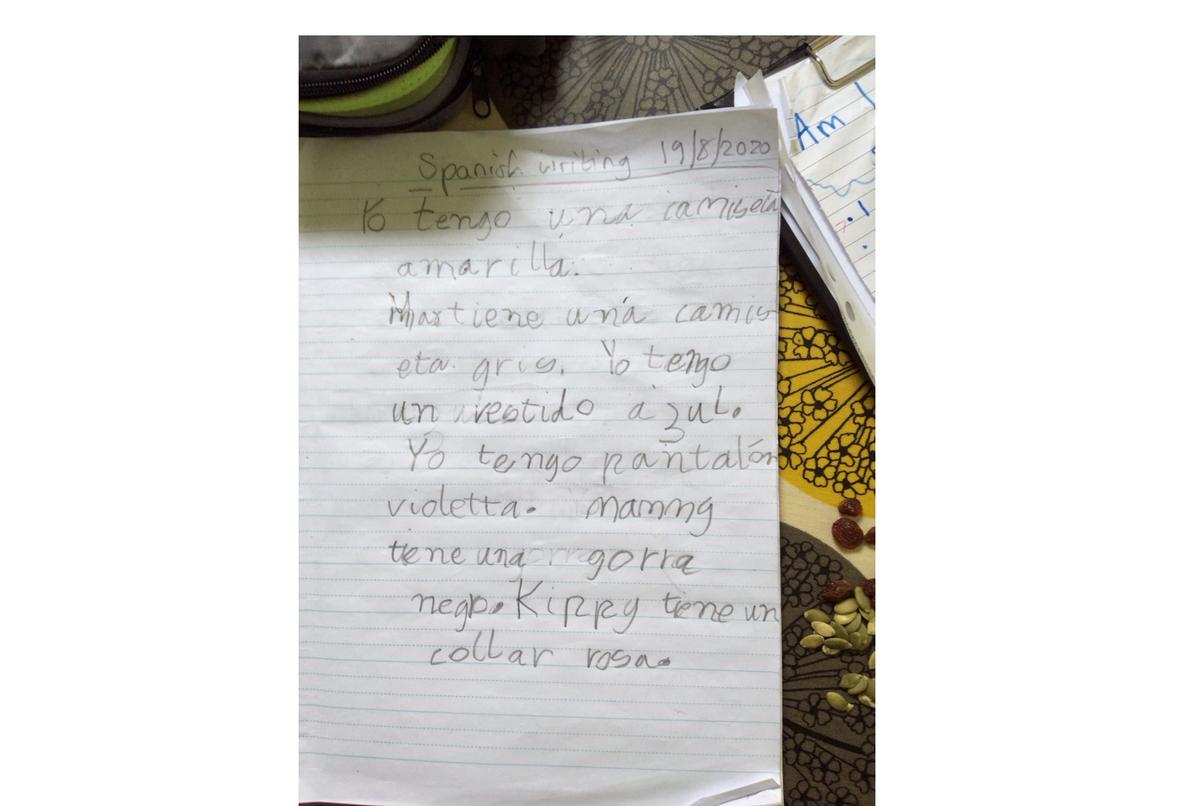 Spanish writing 19/8/2020
Yo tengo una camiseta
amarilla.
Mar tiene una camis
eta gris. Yo tengo
un vestido azul.
Yo tengo pantalón
violetta. mammy
tiene una gorra
negro. Kippy tiene un
collar rosa.
Am I